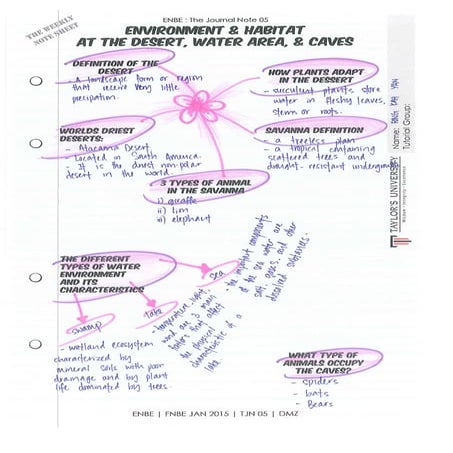 THE WEEKLY
NOTE SHEET
ENBE : The Journal Note 05
ENVIRONMENT & HABITAT
AT THE DESERT, WATER AREA, & CAVES
DEFINITION OF THE
DESERT
- a landscape form or region
that receive very little
precipation.
HOW PLANTS ADAPT
IN THE DESSERT
- succulent plants store
water in fleshy leaves,
stems or roots.
WORLDS DRIEST
DESERTS:
- Atacama Desert
- Located in South America.
- It is the driest non-polar
desert in the world.
SAVANNA DEFINITION
- a treeless plain
- a tropical containing
scattered trees and
drought-resistant undergrowth
3 TYPES OF ANIMAL
IN THE SAVANNA
i) giraffe
ii) lion
iii) elephant
Name:
Tutorial Group:
TAYLOR'S UNIVERSITY
THE DIFFERENT
TYPES OF WATER
ENVIRONMENT
AND ITS
CHARACTERISTICS
swamp
lake
sea
- wetland ecosystem
characterized by
mineral soils with poor
drainage and by plant
life dominated by trees.
- temperature, light,
wind are 3 main
factors that affect
the physical
characteristic of a
lake
- the important components
of the sea water are
salt, gases, and other
dissolved substances.
WHAT TYPE OF
ANIMALS OCCUPY
THE CAVES?
- spiders
- bats
- Bears
ENBE | FNBE JAN 2015 | TJN 05 | DMZ